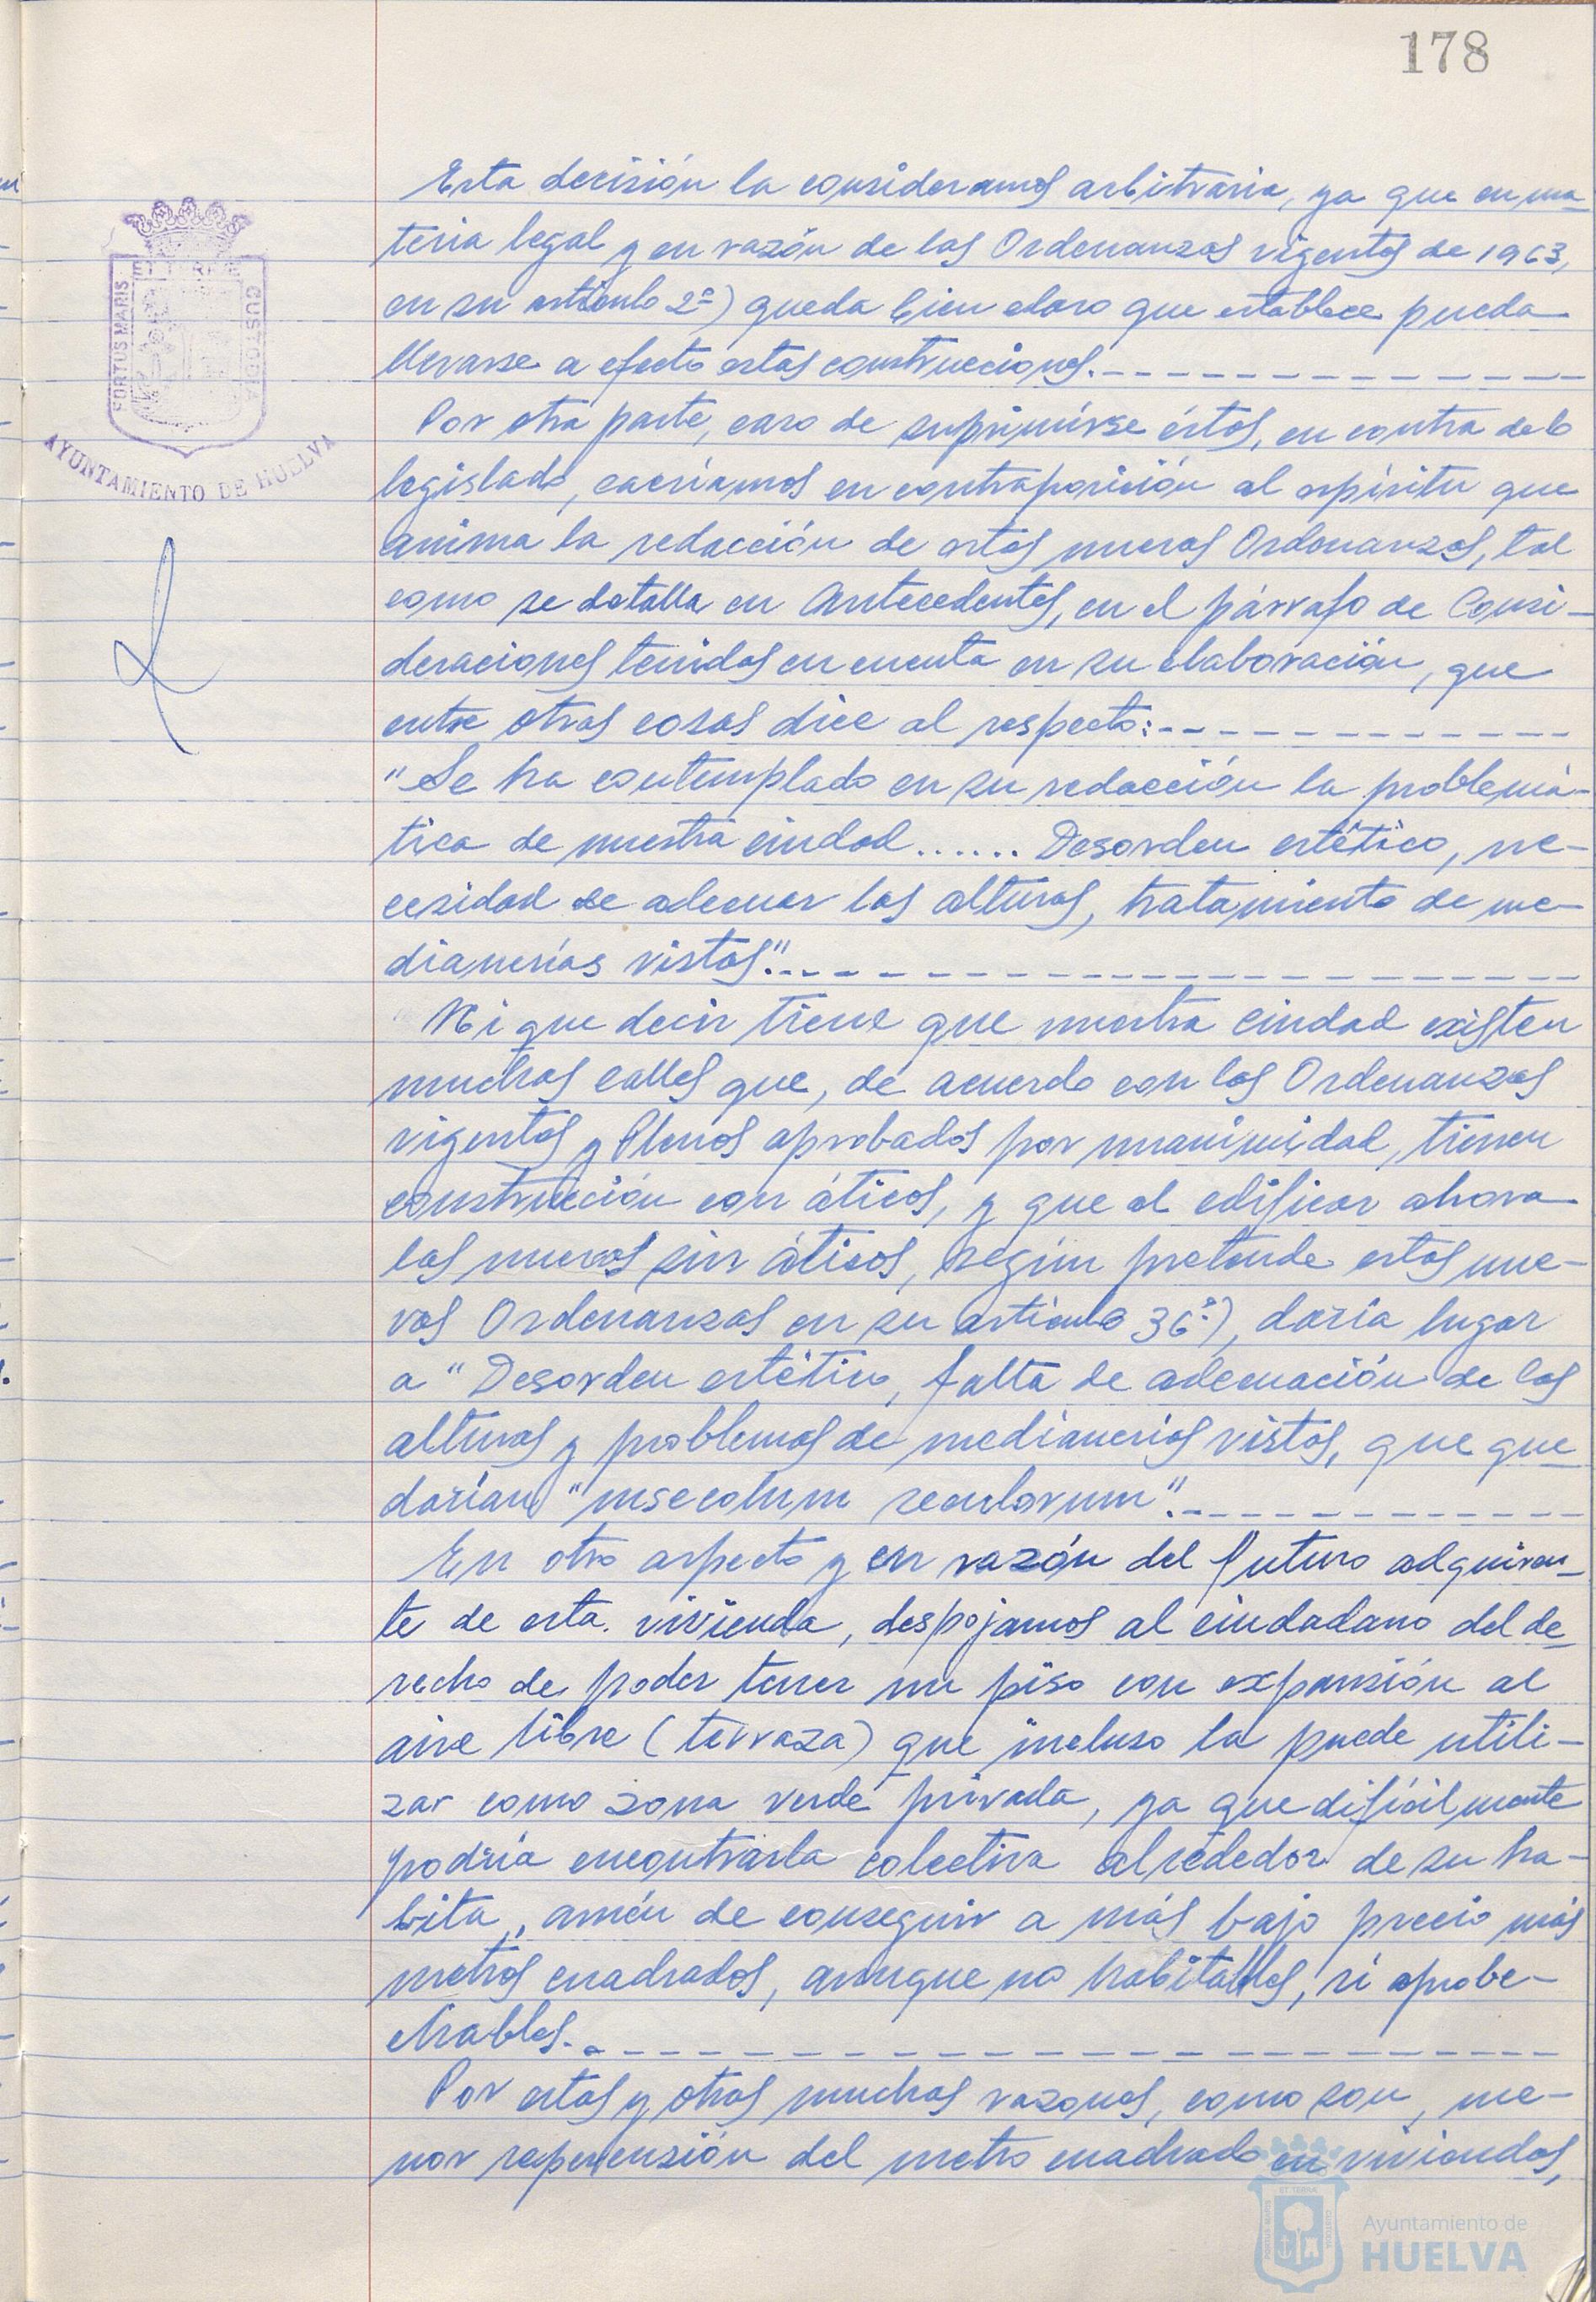 178
Esta decisión la consideramos arbitraria, ya que en ma-
teria legal y en razón de las Ordenanzas vigentes de 1963,
en su artículo 2º) queda bien claro que establece pueda
llevarse a efecto estas construcciones.
Por otra parte, caso de suprimirse éstos, en contra de lo
legislado, caeríamos en contraposición al espíritu que
anima la redacción de estas nuevas Ordenanzas, tal
como se detalla en Antecedentes, en el párrafo de Consi-
deraciones tenidas en cuenta en su elaboración, que
entre otras cosas dice al respecto:
"Se ha contemplado en su redacción la problemá-
tica de nuestra ciudad...... Desorden estético, ne-
cesidad de adecuar las alturas, tratamiento de me-
dianerías vistas".
Ni que decir tiene que nuestra ciudad existen
muchas calles que, de acuerdo con las Ordenanzas
vigentes y Plenos aprobados por unanimidad, tienen
construcción con áticos, y que al edificar ahora
las nuevas sin áticos, según pretende estas nue-
vas Ordenanzas en su artículo 36º), daría lugar
a "Desorden estético, falta de adecuación de las
alturas y problemas de medianerías vistas, que que-
darían "insecolum secolorum".
En otro aspecto y en razón del futuro adquiren-
te de esta vivienda, despojamos al ciudadano del de-
recho de poder tener un piso con expansión al
aire libre (terraza) que incluso la puede utili-
zar como zona verde privada, ya que difícilmente
podría encontrarla colectiva alrededor de su ha-
bita, amén de conseguir a más bajo precio más
metros cuadrados, aunque no habitables, si aprobe-
chables.
Por estas y otras muchas razones, como son, me-
nor repercusión del metro cuadrado en viviendas,
PORTUS MARIS
ET TERRE
CUSTODIA
AYUNTAMIENTO DE HUELVA
Ayuntamiento de
HUELVA